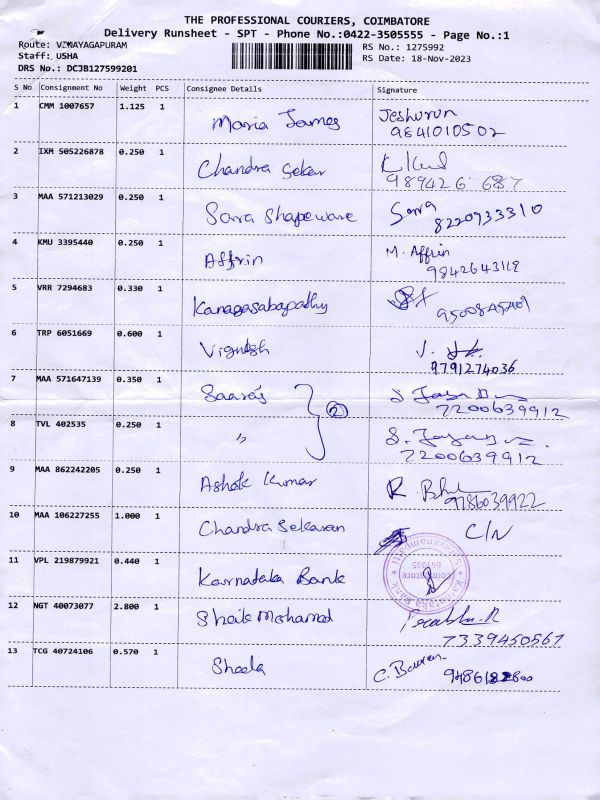 THE PROFESSIONAL COURIERS, COIMBATORE
Delivery Runsheet - SPT - Phone No.:0422-3505555 - Page No.:1
Route: VINAYAGAPURAM
RS No.: 1275992
Staff: USHA
RS Date: 18-Nov-2023
DRS No.: DCJB127599201
S No Consignment No Weight PCS Consignee Details Signature
1 CMM 1007657 1.125 1 Maria James Jeshurun
9841010502
2 IXM 505226878 0.250 1 Chandra Sekar
989426 687
3 MAA 571213029 0.250 1 Sara Shapeware Sara
8220933310
4 KMU 3395440 0.250 1 Affrin M. Affrin
9842643118
5 VRR 7294683 0.330 1 Kanagasabapathy
6 TRP 6051669 0.600 1 Vignesh
9791274036
7 MAA 571647139 0.350 1 Saara's 2
7200639912
8 TVL 402535 0.250 1 "
7200639912
9 MAA 862242205 0.250 1 Ashok Kumar
9786039922
10 MAA 106227255 1.000 1 Chandra Sekaran C/N
11 VPL 219879921 0.440 1 Karnataka Bank
Karnataka Bank
Coimbatore
641035
12 NGT 40073077 2.800 1 Shaik Mohamed Prabhu.R
7339450567
13 TCG 40724106 0.570 1 Sheela